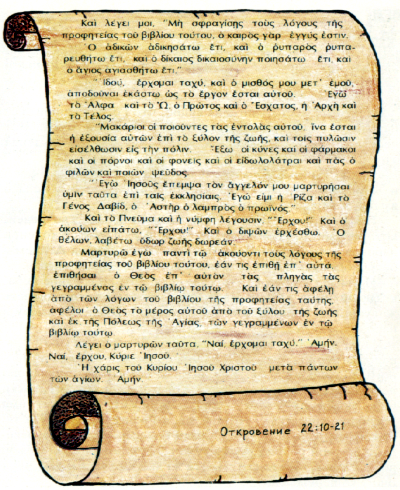 Καὶ λέγει μοι, "Μὴ σφραγίσῃς τοὺς λόγους τῆς
προφητείας τοῦ βιβλίου τούτου, ὁ καιρος γὰρ ἐγγύς ἐστιν.
Ὁ ἀδικῶν ἀδικησάτω ἔτι, καὶ ὁ ῥυπαρὸς ῥυπα-
ρευθήτω ἔτι, καὶ ὁ δίκαιος δικαιοσύνην ποιησάτω ἔτι, καὶ
ὁ ἅγιος ἁγιασθήτω ἔτι."
"Ἰδού, ἔρχομαι ταχύ, καὶ ὁ μισθός μου μετ' ἐμοῦ,
ἀποδοῦναι ἑκάστῳ ὡς τὸ ἔργον ἔσται αὐτοῦ. Ἐγὼ
τὸ Ἄλφα καὶ τὸ Ὦ, ὁ Πρῶτος καὶ ὁ Ἔσχατος, ἡ Ἀρχὴ καὶ
τὸ Τέλος.
"Μακάριοι οἱ ποιοῦντες τὰς ἐντολὰς αὐτοῦ, ἵνα ἔσται
ἡ ἐξουσία αὐτῶν ἐπὶ τὸ ξύλον τῆς ζωῆς, καὶ τοῖς πυλῶσιν
εἰσέλθωσιν εἰς τὴν πόλιν. Ἔξω οἱ κύνες καὶ οἱ φαρμακοὶ
καὶ οἱ πόρνοι καὶ οἱ φονεῖς καὶ οἱ εἰδωλολάτραι καὶ πᾶς ὁ
φιλῶν καὶ ποιῶν ψεῦδος.
"Ἐγὼ Ἰησοῦς ἔπεμψα τὸν ἄγγελόν μου μαρτυρῆσαι
ὑμῖν ταῦτα ἐπὶ ταῖς ἐκκλησίαις. Ἐγώ εἰμι ἡ Ῥίζα καὶ τὸ
Γένος Δαβίδ, ὁ Ἀστὴρ ὁ λαμπρὸς ὁ πρωϊνός."
Καὶ τὸ Πνεῦμα καὶ ἡ νύμφη λέγουσιν, "Ἔρχου!" Καὶ ὁ
ἀκούων εἰπάτω, "Ἔρχου!" Καὶ ὁ διψῶν ἐρχέσθω. Ὁ
θέλων, λαβέτω ὕδωρ ζωῆς δωρεάν.
Μαρτυρῶ ἐγὼ παντὶ τῷ ἀκούοντι τοὺς λόγους τῆς
προφητείας τοῦ βιβλίου τούτου, ἐάν τις ἐπιθῇ ἐπ' αὐτά,
ἐπιθήσαι ὁ Θεὸς ἐπ' αὐτὸν τὰς πληγὰς τὰς
γεγραμμένας ἐν τῷ βιβλίῳ τούτῳ. Καὶ ἐάν τις ἀφέλῃ
ἀπὸ τῶν λόγων τοῦ βιβλίου τῆς προφητείας ταύτης,
ἀφέλοι ὁ Θεὸς τὸ μέρος αὐτοῦ ἀπὸ τοῦ ξύλου τῆς ζωῆς
καὶ ἐκ τῆς Πόλεως τῆς Ἁγίας, τῶν γεγραμμένων ἐν τῷ
βιβλίῳ τούτῳ.
Λέγει ὁ μαρτυρῶν ταῦτα, "Ναί, ἔρχομαι ταχύ." Ἀμήν.
Ναί, ἔρχου, Κύριε Ἰησοῦ.
Ἡ χάρις τοῦ Κυρίου Ἰησοῦ Χριστοῦ μετὰ πάντων
τῶν ἁγίων. Ἀμήν.
Откровение 22:10-21